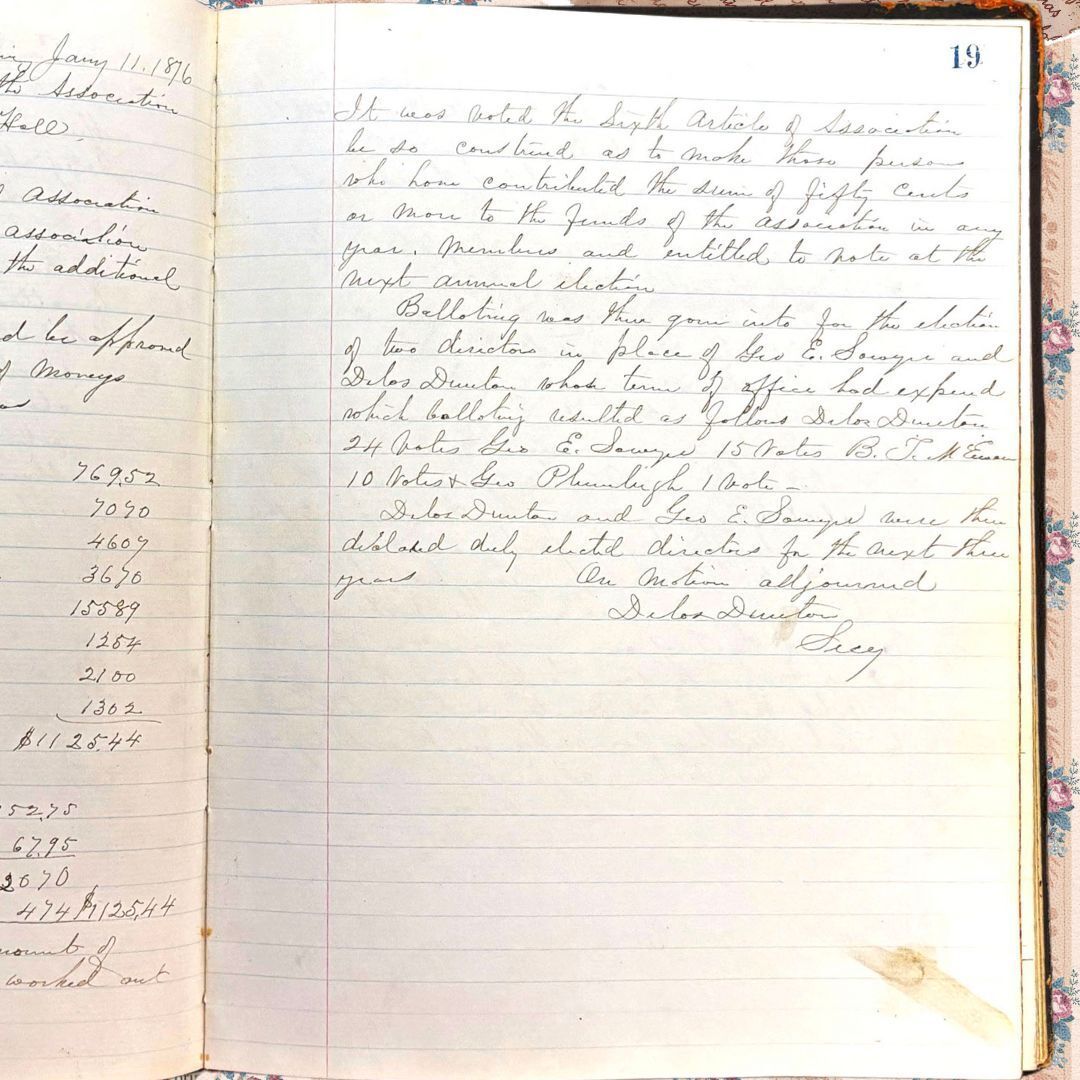 Jany 11. 1876
the Association
Hall
Association
association
the additional
d be approved
of Moneys
769.52
7070
4607
3670
15589
1254
2100
1302
$1125.44
52.75
67.95
2670
474 $1125.44
mount of
worked out
19
It was voted the Sixth Article of Association
be so construed as to make those persons
who have contributed the sum of fifty cents
or more to the funds of the association in any
year, members and entitled to vote at the
next annual election
Balloting was then gone into for the election
of two directors in place of Geo E. Sawyer and
Delos Dunton whose term of office had expired
which balloting resulted as follows Delos Dunton
24 Votes Geo E. Sawyer 15 Votes B. T. McEwan
10 Votes & Geo 1 Vote –
Delos Dunton and Geo E. Sawyer were then
declared duly elected directors for the next three
years On Motion adjourned
Delos Dunton
Secy